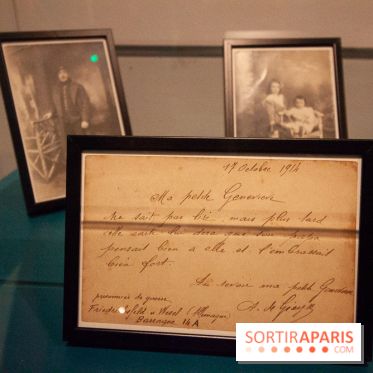 17 October 1914
Ma petite Geneviève
Ne sait pas lire mais plus tard
elle saura lire que son
pensait bien a elle et l'embrassait
bien fort.
Au revoir ma petite
prisonnier de guerre
A. de
Friedrichsfeld a Wesel (Allemagne)
Baraque 14 A
SORTIRAPARIS
.COM